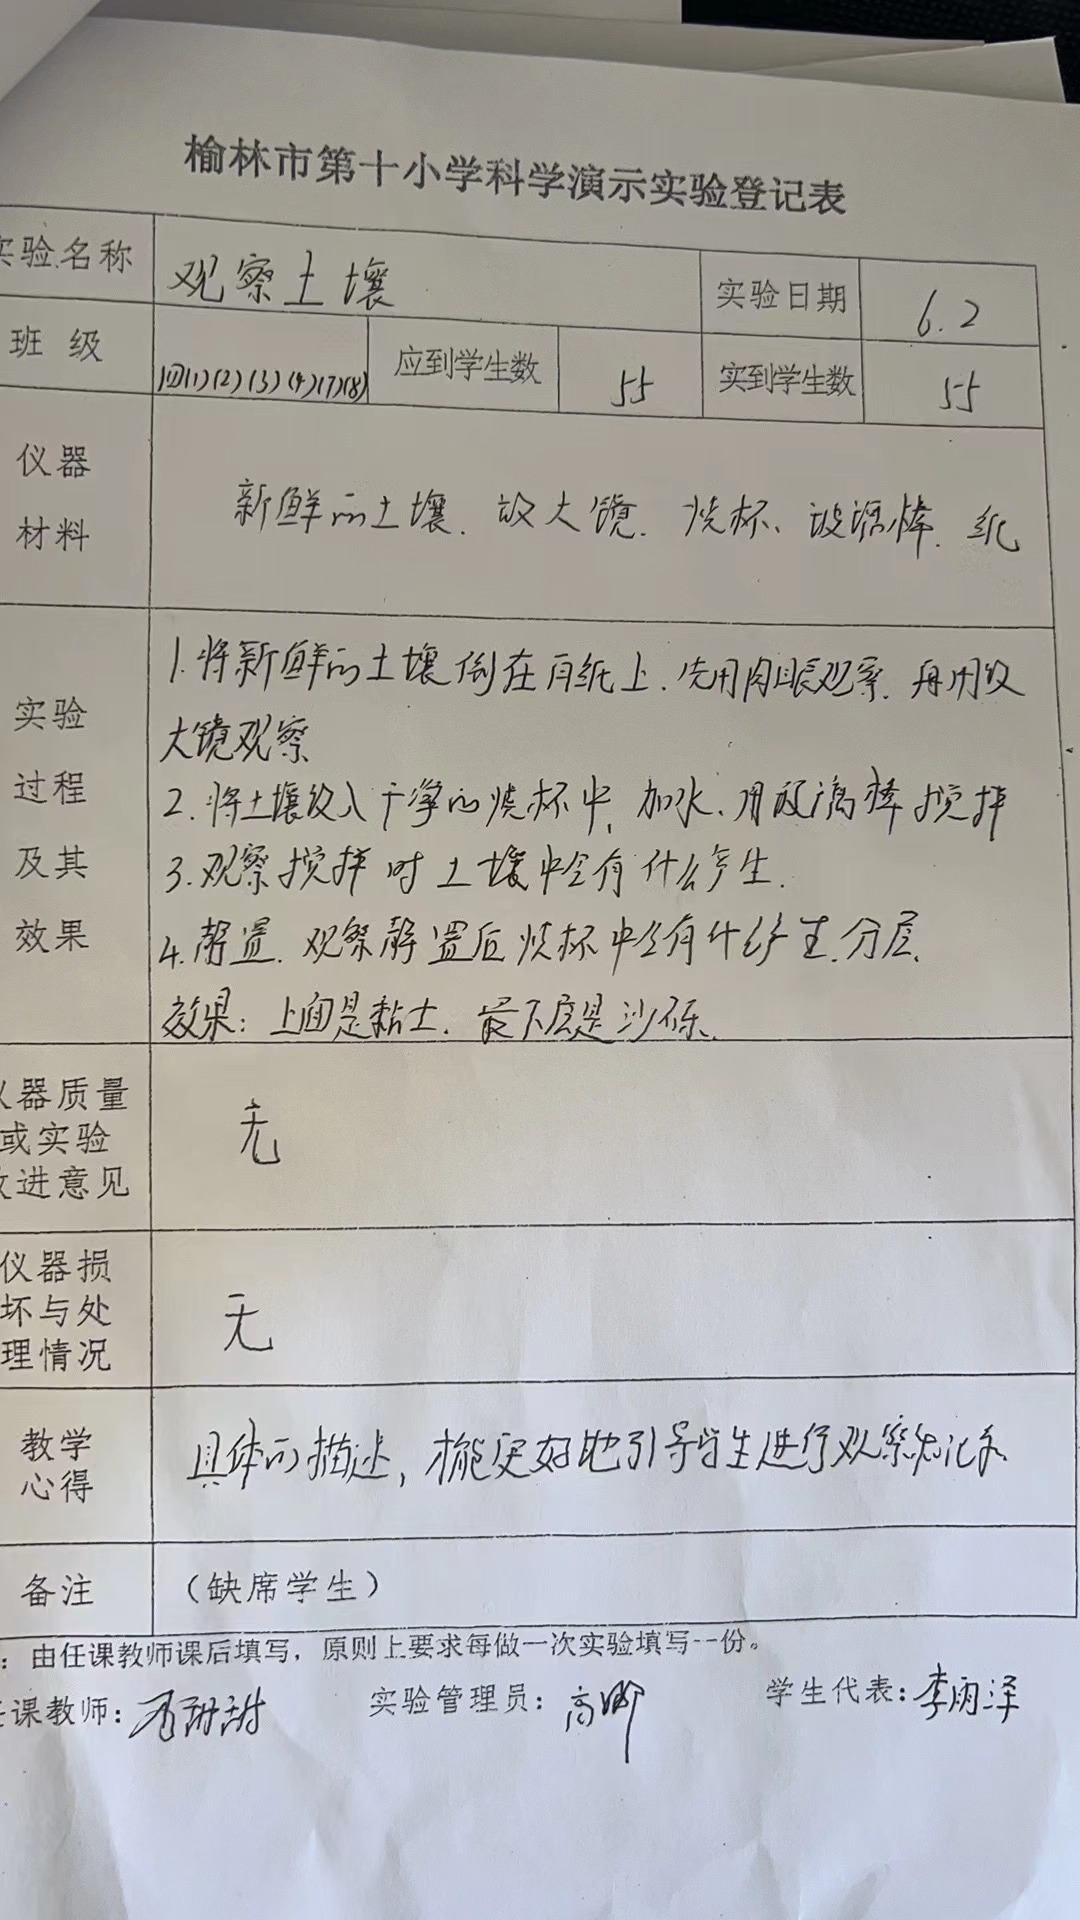 榆林市第十小学科学演示实验登记表
实验名称 观察土壤 实验日期 6.2
班 级 四(1)(2)(3)(4)(7)(8) 应到学生数 55 实到学生数 55
仪器
材料
新鲜的土壤、放大镜、烧杯、玻璃棒、纸
实验
过程
及其
效果
1.将新鲜的土壤倒在白纸上、先用肉眼观察、再用放
大镜观察
2.将土壤放入干净的烧杯中，加水、用玻璃棒搅拌
3.观察搅拌时土壤中会有什么产生.
4.静置、观察静置后烧杯中会有什么产生.分层.
效果：上面是黏土、最下层是沙砾、
仪器质量
或实验
改进意见
无
仪器损
坏与处
理情况
无
教学
心得
具体的描述，能更好地引导学生进行观察和记录
备注 （缺席学生）
：由任课教师课后填写，原则上要求每做一次实验填写一份。
任课教师： 甜甜 实验管理员：高 学生代表：李雨泽